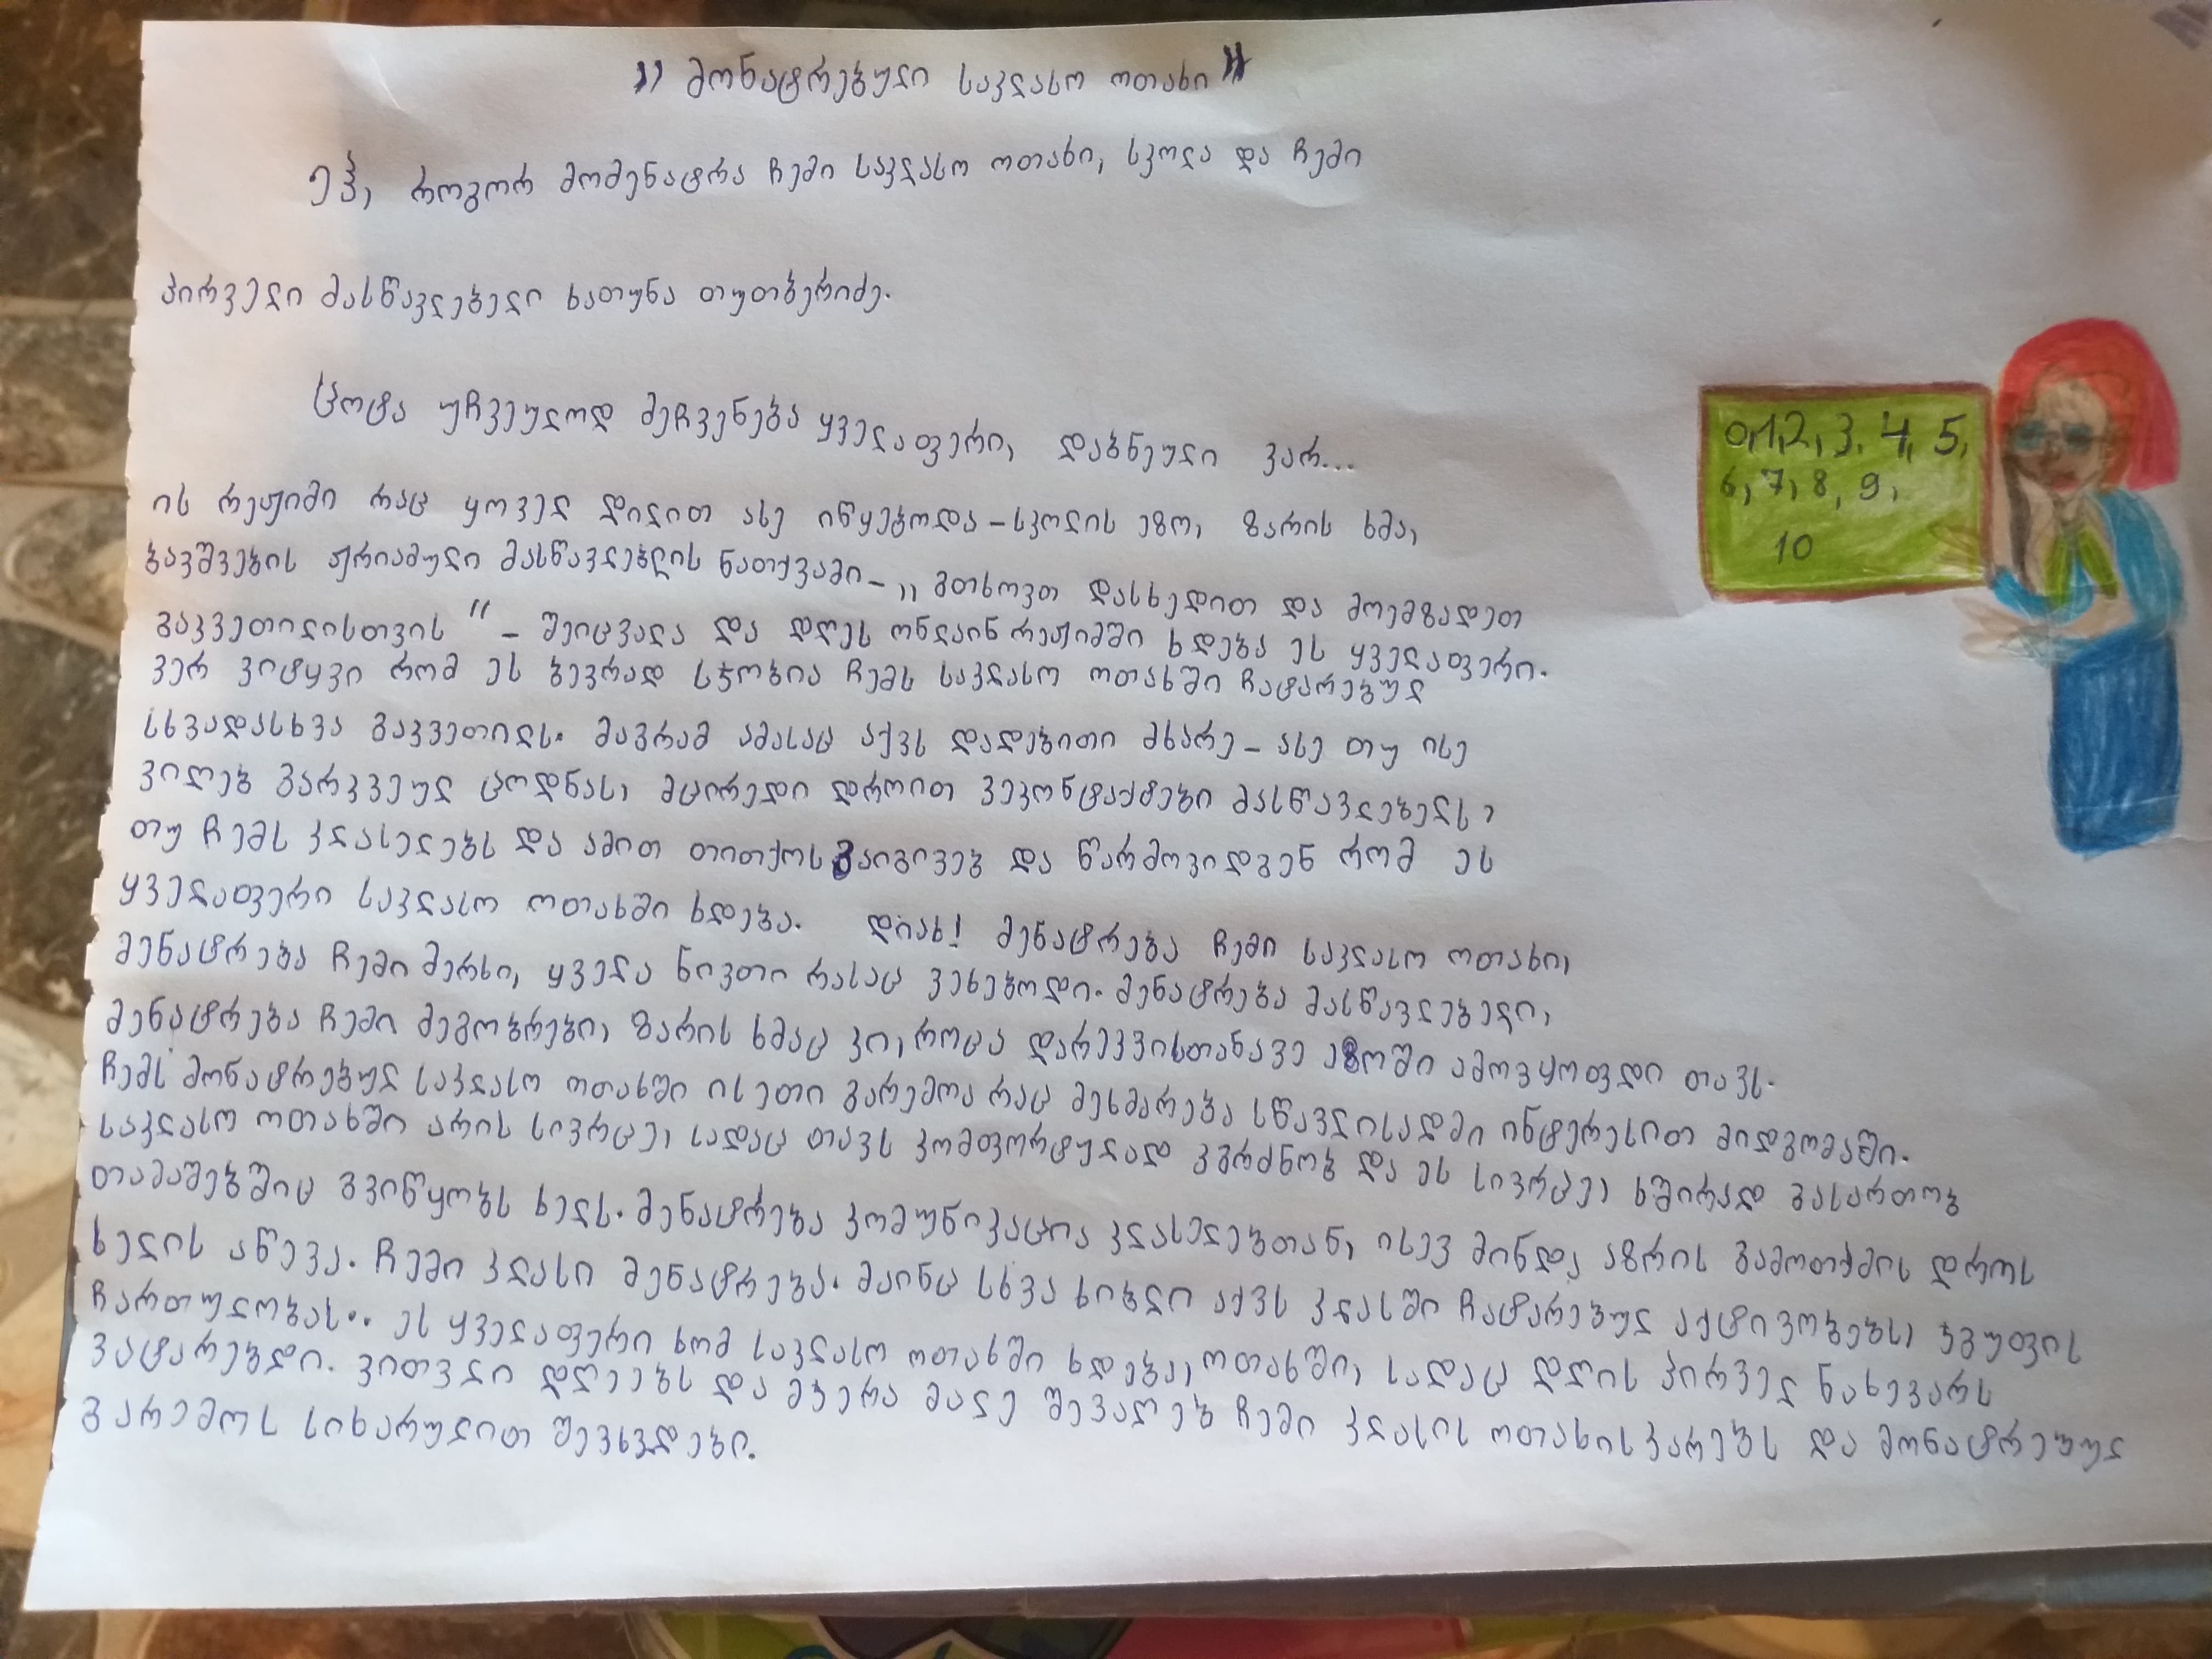 „მონატრებული საკლასო ოთახი"
ეჰ, როგორ მომენატრა ჩემი საკლასო ოთახი, სკოლა და ჩემი
პირველი მასწავლებელი ხათუნა თუთბერიძე.
ცოტა უჩვეულოდ მეჩვენება ყველაფერი, დაბნეული ვარ...
ის რეჟიმი რაც ყოველ დილით ასე იწყებოდა - სკოლის ეზო, ზარის ხმა,
ბავშვების ჟრიამული მასწავლებლის ნათქვამი - „გთხოვთ დასხედით და მოემზადეთ
გაკვეთილისთვის" - შეიცვალა და დღეს ონლაინ რეჟიმში ხდება ეს ყველაფერი.
ვერ ვიტყვი რომ ეს ბევრად სჯობია ჩემს საკლასო ოთახში ჩატარებულ
სხვადასხვა გაკვეთილს. მაგრამ ამასაც აქვს დადებითი მხარე - ასე თუ ისე
ვიღებ გარკვეულ ცოდნას, მცირედი დროით ვეკონტაქტები მასწავლებელს,
თუ ჩემს კლასელებს და ამით თითქოს ვაიგივებ და წარმოვიდგენ რომ ეს
ყველაფერი საკლასო ოთახში ხდება. დიახ! მენატრება ჩემი საკლასო ოთახი,
მენატრება ჩემი მერხი, ყველა ნივთი რასაც ვეხებოდი. მენატრება მასწავლებელი,
მენატრება ჩემი მეგობრები, ზარის ხმაც კი, როცა დარეკვისთანავე ეზოში ამოვყოფდი თავს.
ჩემს მონატრებულ საკლასო ოთახში ისეთი გარემოა რაც მეხმარება სწავლისადმი ინტერესით მიდგომაში.
საკლასო ოთახში არის სივრცე, სადაც თავს კომფორტულად ვგრძნობ და ეს სივრცე, ხშირად გასართობ
თამაშებშიც გვიწყობს ხელს. მენატრება კომუნიკაცია კლასელებთან, ისევ მინდა აზრის გამოთქმის დროს
ხელის აწევა. ჩემი კლასი მენატრება. მაინც სხვა ხიბლი აქვს კლასში ჩატარებულ აქტივობებს, ჯგუფის
ჩართულობას.. ეს ყველაფერი ხომ საკლასო ოთახში ხდება, ოთახში, სადაც დღის პირველ ნახევარს
ვატარებდი. ვითვლი დღეებს და მჯერა მალე შევაღებ ჩემი კლასის ოთახის კარებს და მონატრებულ
გარემოს სიხარულით შევხვდები.
0,1,2,3,4,5,
6,7,8,9,
10